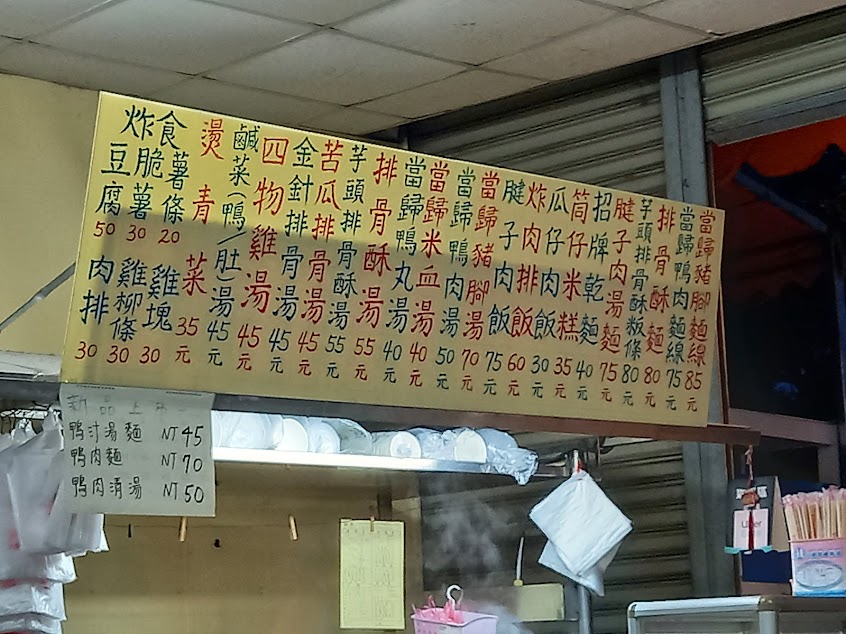 當歸豬腳麵線85元
當歸鴨肉麵線75元
排骨酥麵80元
芋頭排骨酥粄條80元
腱子肉湯麵75元
招牌乾麵40元
筒仔米糕35元
瓜仔肉飯30元
炸肉排飯60元
腱子肉飯75元
當歸豬腳湯70元
當歸鴨肉湯50元
當歸米血湯40元
當歸鴨丸湯40元
排骨酥湯55元
芋頭排骨酥湯55元
苦瓜排骨湯45元
金針排骨湯45元
四物雞湯45元
鹹菜(鴨/肚)湯45元
燙青菜35元
炸食
薯條20
脆薯30
豆腐50
雞塊30
雞柳條30
肉排30
新品上市
鴨汁湯麵 NT 45
鴨肉麵 NT 70
鴨肉清湯 NT 50
Uber